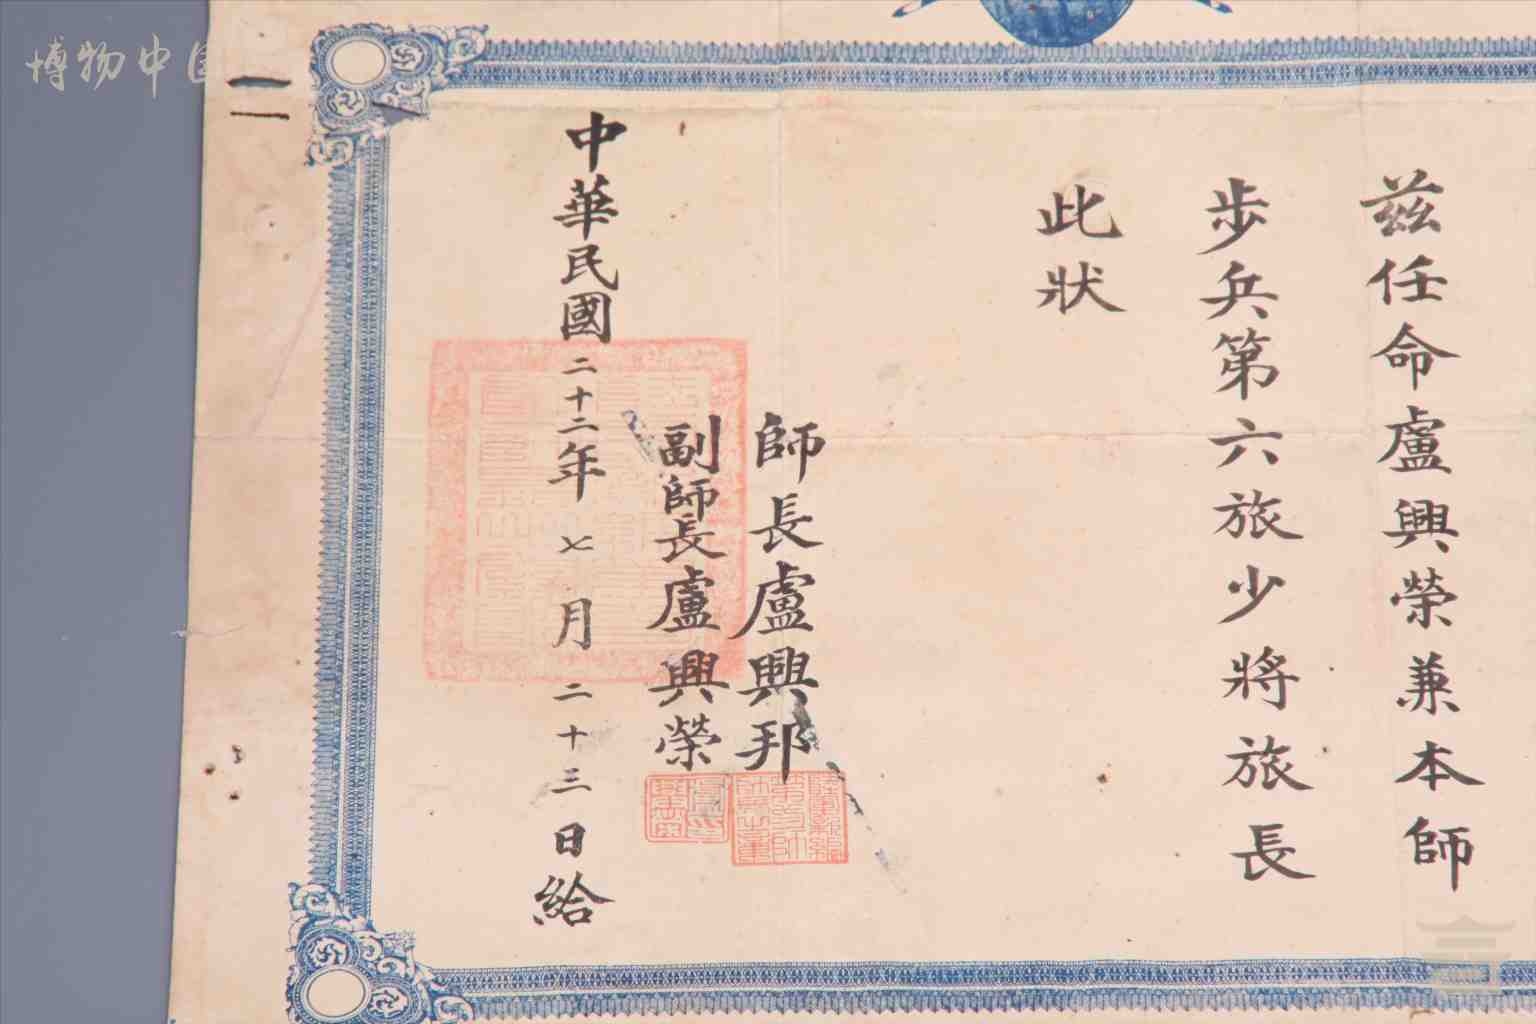 兹任命盧興榮兼本師
步兵第六旅少將旅長
此狀
師長盧興邦
副師長盧興榮
中華民國二十二年七月二十三日給
博物中国